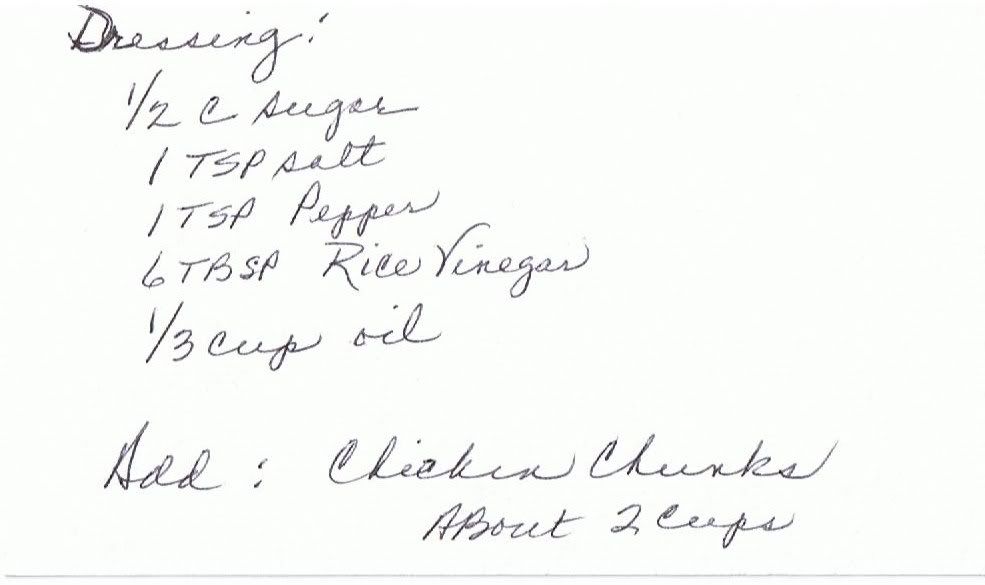 Dressing:
1/2 C sugar
1 TSP salt
1 TSP Pepper
6 TBSP Rice Vinegar
1/3 cup oil
Add : Chicken Chunks
ABout 2 cups